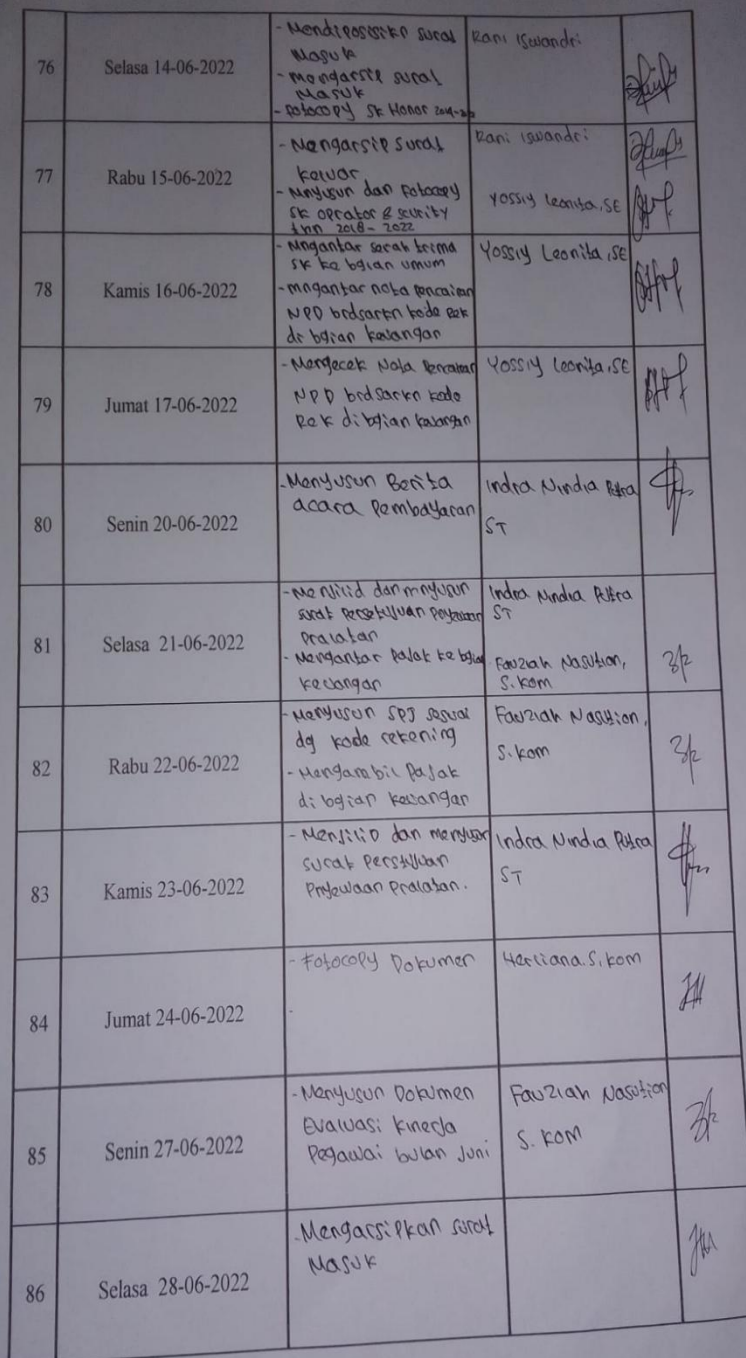 76
Selasa 14-06-2022
- Mendisposisikn surat
Masuk
- mengarsip surat
Masuk
- Fotocopy SK Honor
Rani Iswandri
77
Rabu 15-06-2022
- Mengarsip surat
keluar
- Mnyusun dan Fotocopy
SK oprator & scurity
thn 2018 - 2022
Rani Iswandri
Yossiy Leonita, SE
78
Kamis 16-06-2022
- Mngantar serah trima
SK ke bgian umum
- mngantar nota pencairan
NPD brdsarkn kode Rek
di bgian keuangan
Yossiy Leonita, SE
79
Jumat 17-06-2022
- Mengecek Nota Pencairan
NPD brdsarkn kode
Rek di bgian keuangan
Yossiy Leonita, SE
80
Senin 20-06-2022
- Menyusun Berita
acara Pembayaran
Indra Nindia Putra
ST
81
Selasa 21-06-2022
- Menjilid dan mnyusun
surat Persetujuan
Pralatan
- Mengantar Pajak ke bgian
keuangan
Indra Nindia Putra
ST
Fauziah Nasution,
S. Kom
82
Rabu 22-06-2022
- Menyusun SPJ sesuai
dg kode rekening
- Mengambil Pajak
di bgian keuangan
Fauziah Nasution,
S. Kom
83
Kamis 23-06-2022
- Menjilid dan menyusun
surat Perstujuan
Pnyewaan Pralatan.
Indra Nindia Putra
ST
84
Jumat 24-06-2022
- Fotocopy Dokumen
Herliana. S. Kom
85
Senin 27-06-2022
- Menyusun Dokumen
Evaluasi Kinerja
Pegawai bulan Juni
Fauziah Nasution
S. Kom
86
Selasa 28-06-2022
- Mengarsipkan surat
Masuk